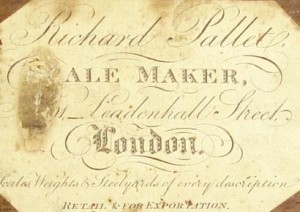 Richard Pallet,
ALE MAKER,
Leadenhall Street
London.
Scales, Weights & Steelyards of every description
RETAIL & FOR EXPORTATION.